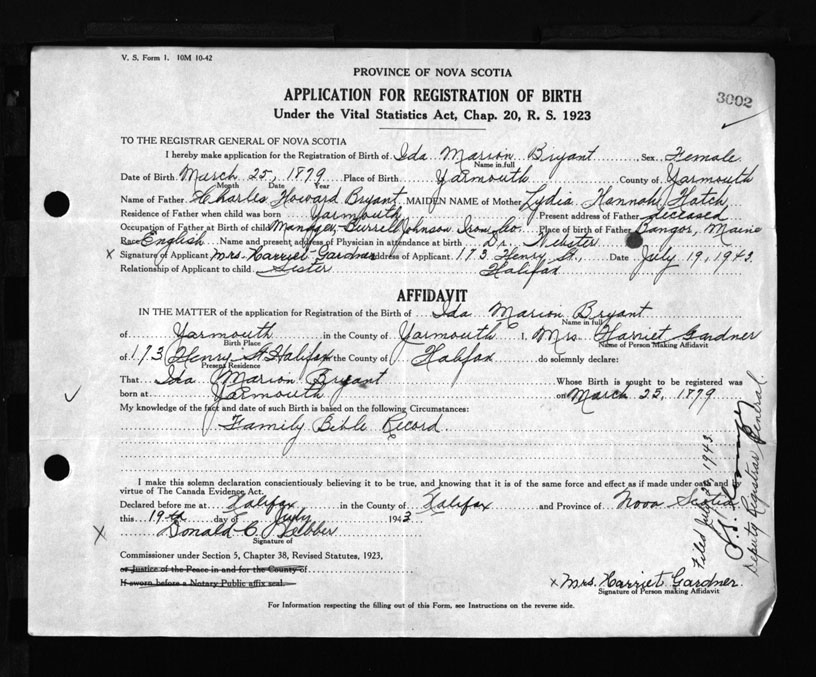 V. S. Form 1. 10M 10-42
PROVINCE OF NOVA SCOTIA
APPLICATION FOR REGISTRATION OF BIRTH
3002
Under the Vital Statistics Act, Chap. 20, R. S. 1923
TO THE REGISTRAR GENERAL OF NOVA SCOTIA
I hereby make application for the Registration of Birth of Ida Marion Bryant Sex Female
Name in full
Date of Birth March 25, 1879 Place of Birth Yarmouth County of Yarmouth
Month Date Year
Name of Father Charles Howard Bryant MAIDEN NAME of Mother Lydia Hannah Hatch
Residence of Father when child was born Yarmouth Present address of Father deceased
Occupation of Father at Birth of child Manager, Burrell Johnson Iron Co. Place of birth of Father Bangor, Maine
Race English Name and present address of Physician in attendance at birth Dr. Webster
x Signature of Applicant Mrs. Harriet Gardner Address of Applicant 173 Henry St., Date July 19, 1943
Relationship of Applicant to child Sister Halifax
AFFIDAVIT
IN THE MATTER of the application for Registration of the Birth of Ida Marion Bryant
Name in full
of Yarmouth in the County of Yarmouth I, Mrs. Harriet Gardner
Birth Place Name of Person Making Affidavit
of 173 Henry St Halifax in the County of Halifax do solemnly declare:
Present Residence
That Ida Marion Bryant Whose Birth is sought to be registered was
born at Yarmouth on March 25, 1879
My knowledge of the fact and date of such Birth is based on the following Circumstances:
Family Bible Record
I make this solemn declaration conscientiously believing it to be true, and knowing that it is of the same force and effect as if made under oath and by
virtue of The Canada Evidence Act.
Declared before me at Halifax in the County of Halifax and Province of Nova Scotia
this 19th day of July 1943
x Donald C.
Signature of
Commissioner under Section 5, Chapter 38, Revised Statutes, 1923,
or Justice of the Peace in and for the County of
If sworn before a Notary Public affix seal.
x Mrs. Harriet Gardner.
Signature of Person making Affidavit
For Information respecting the filling out of this Form, see Instructions on the reverse side.
Filed July 26, 1943.
Deputy Registrar General.